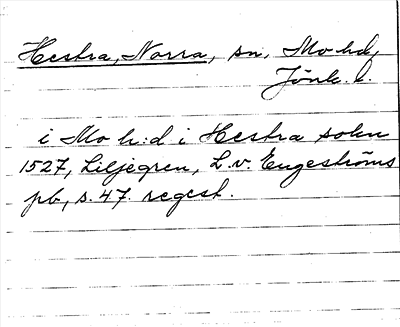 Hestra, Norra, sn, Mo hd,
Jönk. l.
i Mo h:d i Hestra sokn
1527, Liljegren, L. v. Engeströms
pb, s. 47. regest.